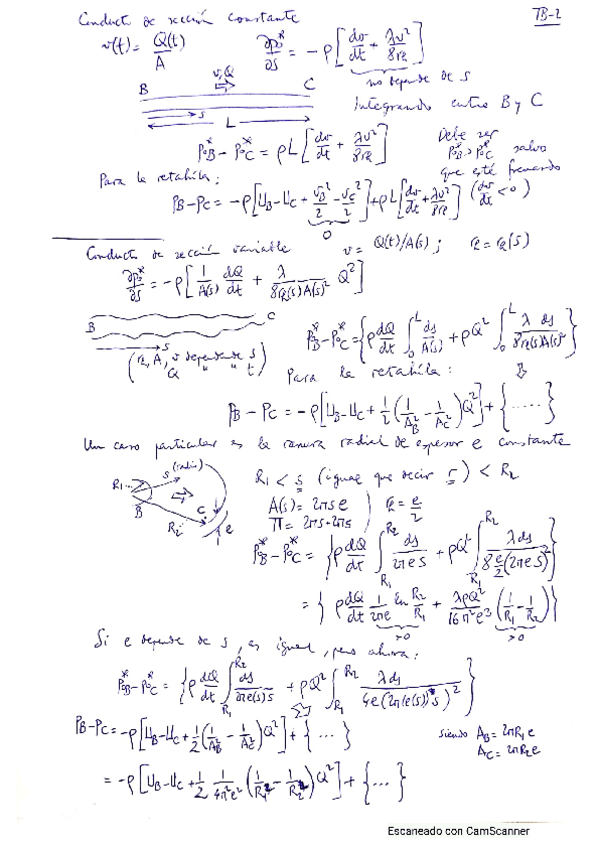 TB-2
Conducto de sección constante
v(t) = Q(t)/A    ∂p₀*/∂s = -ρ[dv/dt + λv²/8r_h]
no depende de s
v,Q
B C
→ s
L
Integrando entre B y C
p₀*B - p₀*C = ρL[dv/dt + λv²/8r_h]
Debe ser p₀*B > p₀*C salvo que esté frenando (dv/dt < 0)
Para la retahíla:
pB - pC = -ρ[UB - UC + vB²/2 - vC²/2] + ρL[dv/dt + λv²/8r_h]
0
Conducto de sección variable    v = Q(t)/A(s); r_h = r_h(s)
∂p₀*/∂s = -ρ[1/A(s) dQ/dt + λ/(8r_h(s)A(s)²) Q²]
B C
→ s
(r_h, A, v dependen de s
Q " " t)
p₀*B - p₀*C = {ρ dQ/dt ∫₀ᴸ ds/A(s) + ρQ² ∫₀ᴸ λ ds/(8r_h(s)A(s)²)}
Para la retahíla:
pB - pC = -ρ[UB - UC + 1/2(1/AB² - 1/AC²)Q²] + {.....}
Un caso particular es la ranura radial de espesor e constante
R₁ s (radio) B C R₂ e
R₁ < s (igual que decir r) < R₂
A(s) = 2πs e
Π = 2πs + 2πs
r_h = e/2
p₀*B - p₀*C = {ρ dQ/dt ∫_R₁^R₂ ds/(2πe s) + ρQ² ∫_R₁^R₂ λds/(8 e/2 (2πe s)²)}
= {ρ dQ/dt 1/(2πe) ln R₂/R₁ + λρQ²/(16π²e³) (1/R₁ - 1/R₂)}
>0 >0
Si e depende de s, es igual, pero ahora:
p₀*B - p₀*C = {ρ dQ/dt ∫_R₁^R₂ ds/(2πe(s)s) + ρQ² ∫_R₁^R₂ λds/(4e(2π(e(s))s)²)}
pB - pC = -ρ[UB - UC + 1/2(1/AB² - 1/AC²)Q²] + {...}
siendo AB = 2πR₁e
AC = 2πR₂e
= -ρ[UB - UC + 1/2 1/(4π²e²) (1/R₁² - 1/R₂²)Q²] + {...}
Escaneado con CamScanner